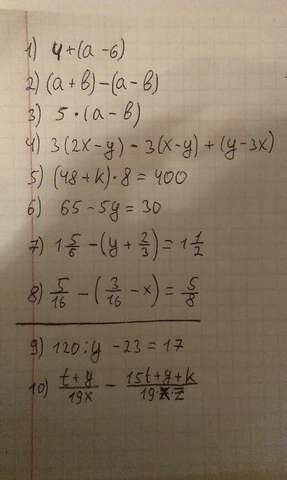 1) 4+(a-6)
2) (a+b)-(a-b)
3) 5·(a-b)
4) 3(2x-y)-3(x-y)+(y-3x)
5) (48+k)·8=400
6) 65-5y=30
7) 1 5/6-(y+2/3)=1 1/2
8) 5/16-(3/16-x)=5/8
9) 120:y-23=17
10) t+y/19x - 15t+y+k/19·x·z